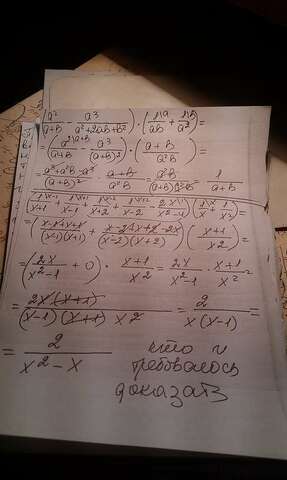 (a²/(a+b) - a³/(a²+2ab+b²)) · (1\a/(ab) + 1\b/a²) =
= (a²\a+b/(a+b) - a³/(a+b)²) · (a+b/(a²b)) =
= (a³+a²b-a³)/(a+b)² · (a+b)/(a²b) = a²b/((a+b)a²b) = 1/(a+b)
= (x-1+x+1)/((x-1)(x+1)) + (x-2+x+2-2x)/((x-2)(x+2)) (x+1/x²) =
= (2x/(x²-1) + 0) · (x+1)/x² = 2x/(x²-1) · (x+1)/x² =
= 2x(x+1)/((x-1)(x+1)x²) = 2/(x(x-1)) =
= 2/(x²-x) что и
требовалось
доказать